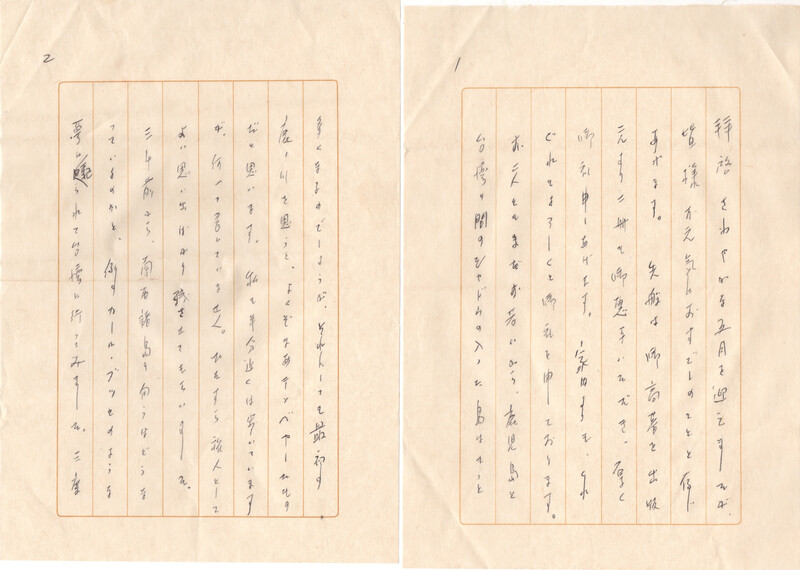 1
拝啓 さわやかな五月を迎えましたが、
皆様お元気におすごしのことと存じ
あげます。先般は御高著を出版
され二冊も御恵予いただき、厚く
御礼申しあげます。家内も、くれ
ぐれもよろしくと御礼を申しております。
お二人ともまだお若いから、鹿児島と
台湾の間の
の入った島はもっと
2
多くなるのでしょうが、それにしても最初の
を思うと、よくぞまあ
だと思います。私も半分近くは歩いています
が、何一つ
していません。ひたすら旅人として
よい思い出ばかり残させてもらいました。
三年前から、南西諸島を
うはどうな
っているのかと、例のカール・ブッセのような
夢に
られて台湾に行ってみました。三度